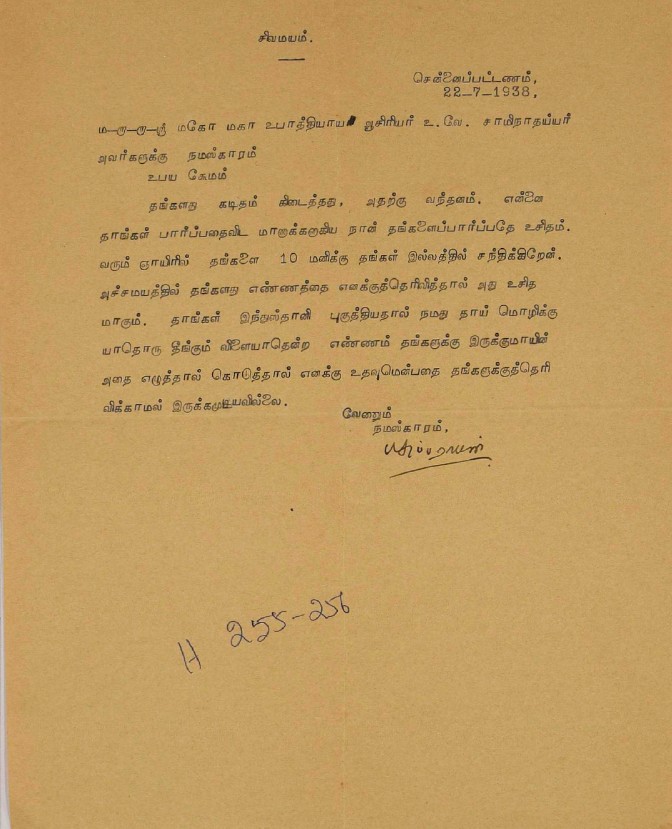 சிவமயம்.
சென்னைப்பட்டணம்,
22-7-1938.
ம-௱-௱-ஸ்ரீ மகோ மகா உபாத்தியாய ஆசிரியர் உ.வே. சாமிநாதய்யர்
அவர்களுக்கு நமஸ்காரம்
உபய க்ஷேமம்
தங்களது கடிதம் கிடைத்தது, அதற்கு வந்தனம். என்னை
தாங்கள் பார்ப்பதைவிட மாணாக்கனாகிய நான் தங்களைப்பார்ப்பதே உசிதம்.
வரும் ஞாயிறில் தங்களை 10 மனிக்கு தங்கள் இல்லத்தில் சந்திக்கிறேன்.
அச்சமயத்தில் தங்களது எண்ணத்தை எனக்குத்தெரிவித்தால் அது உசித
மாகும். தாங்கள் இந்துஸ்தானி புகுத்தியதால் நமது தாய் மொழிக்கு
யாதொரு தீங்கும் விளையாதென்ற எண்ணம் தங்களுக்கு இருக்குமாயின்
அதை எழுத்தால் கொடுத்தால் எனக்கு உதவுமென்பதை தங்களுக்குத்தெரி
விக்காமல் இருக்கமுடியவில்லை.
வேறைம்
நமஸ்காரம்,
H 255-256